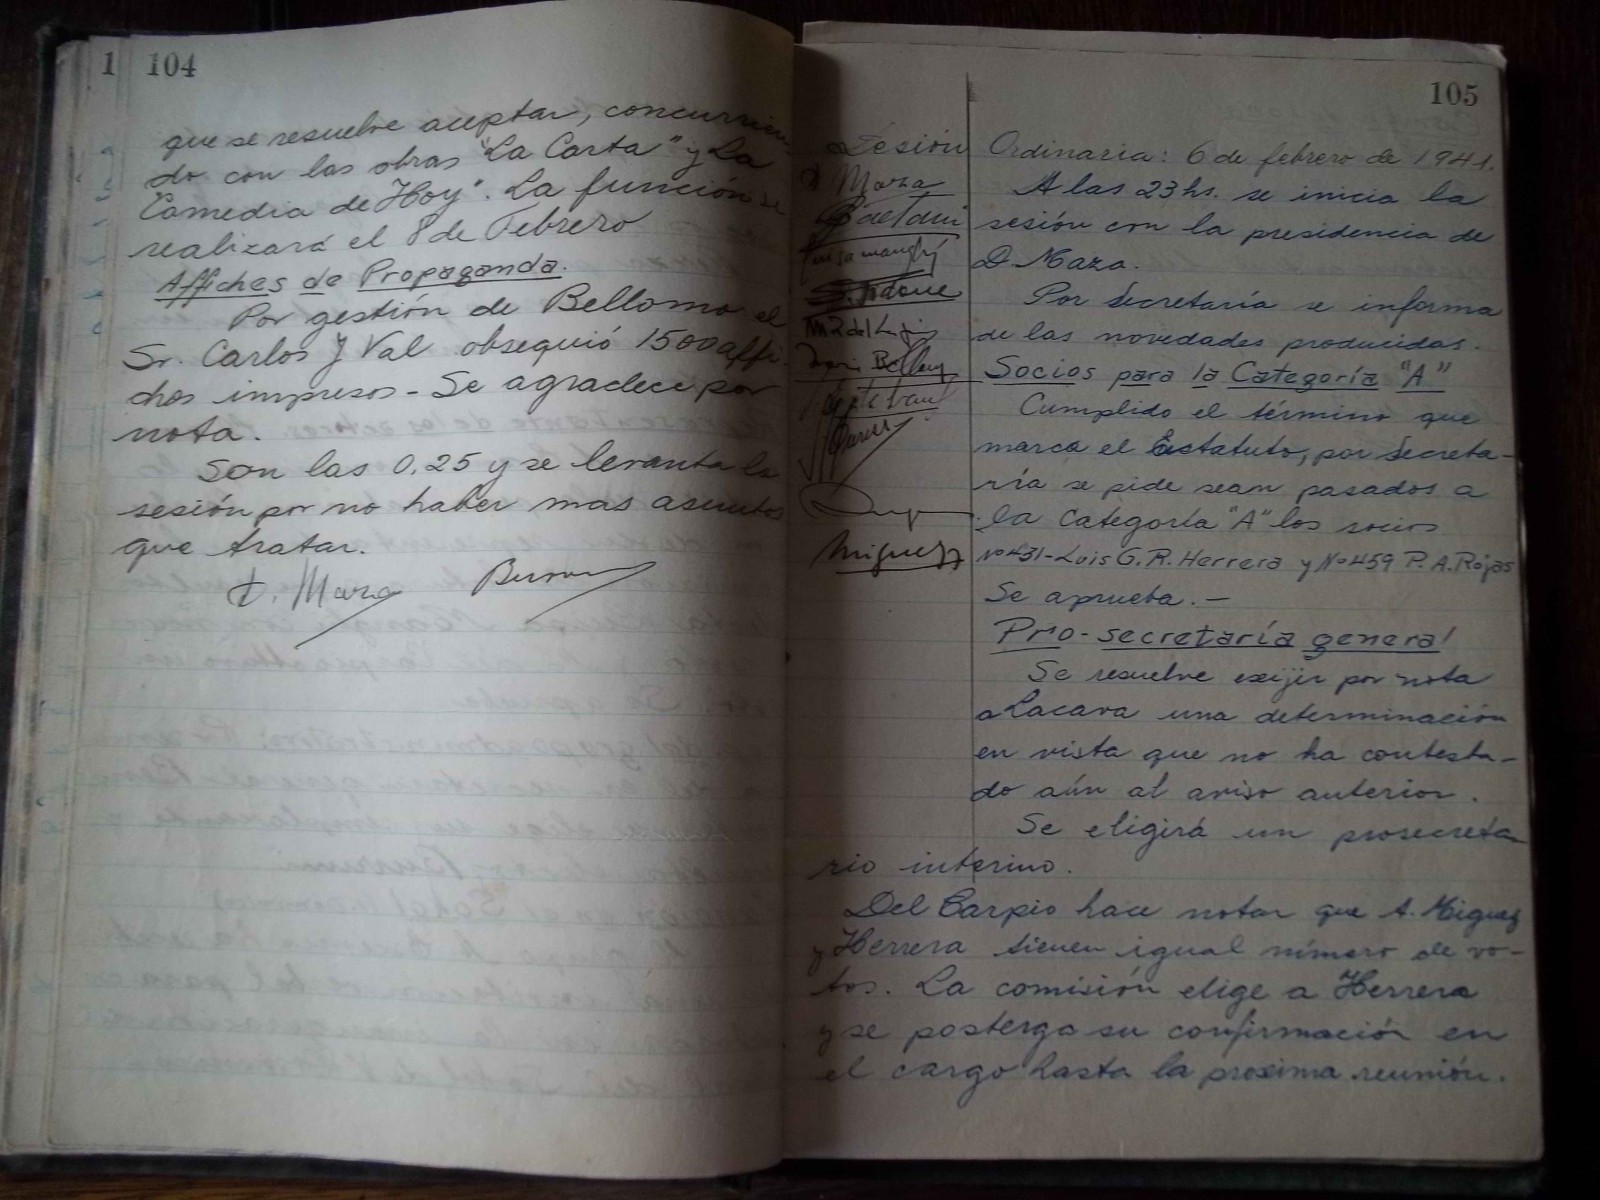 1 104
que se resuelve aceptar, concurrien-
do con las obras "La Carta" y "La
Comedia de Hoy". La función se
realizará el 8 de Febrero
Affiches de Propaganda.
Por gestión de Bellomo el
Sr. Carlos J Val obsequió 1500 affi-
chos impresos - Se agradece por
nota.
Son las 0.25 y se levanta la
sesión por no haber mas asuntos
que tratar.
D. Maza
105
Sesión Ordinaria: 6 de febrero de 1941.
D Maza
Gaetani
Miguez
A las 23 hs. se inicia la
sesión con la presidencia de
D Maza.
Por Secretaría se informa
de las novedades producidas.
Socios para la Categoría "A"
Cumplido el término que
marca el Estatuto, por Secreta-
ría se pide sean pasados a
la Categoría "A" los socios
Nº 431 - Luis G. R. Herrera y Nº 459 P. A. Rojas
Se aprueba. -
Pro-secretaría general
Se resuelve exijir por nota
a Lacava una determinación
en vista que no ha contesta-
do aún al aviso anterior.
Se eligirá un prosecreta
rio interino.
Del Carpio hace notar que A. Miguez
y Herrera tienen igual número de vo-
tos. La comisión elige a Herrera
y se posterga su confirmación en
el cargo hasta la proxima reunión.